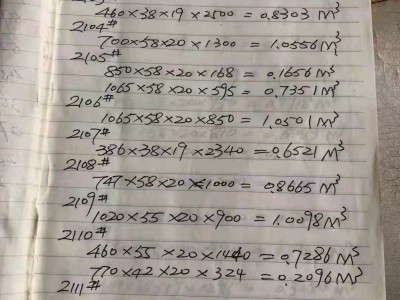 460×38×19×2500=0.8303 M³
2104#
700×58×20×1300=1.0556M³
2105#
850×58×20×168=0.1656M³
1065×58×20×595=0.7351M³
2106#
1065×58×20×850=1.0501M³
2107#
386×38×19×2340=0.6521M³
2108#
747×58×20×1000=0.8665M³
2109#
1020×55×20×900=1.0098M³
2110#
460×55×20×1440=0.7286M³
770×42×20×324=0.2096M³
2111#